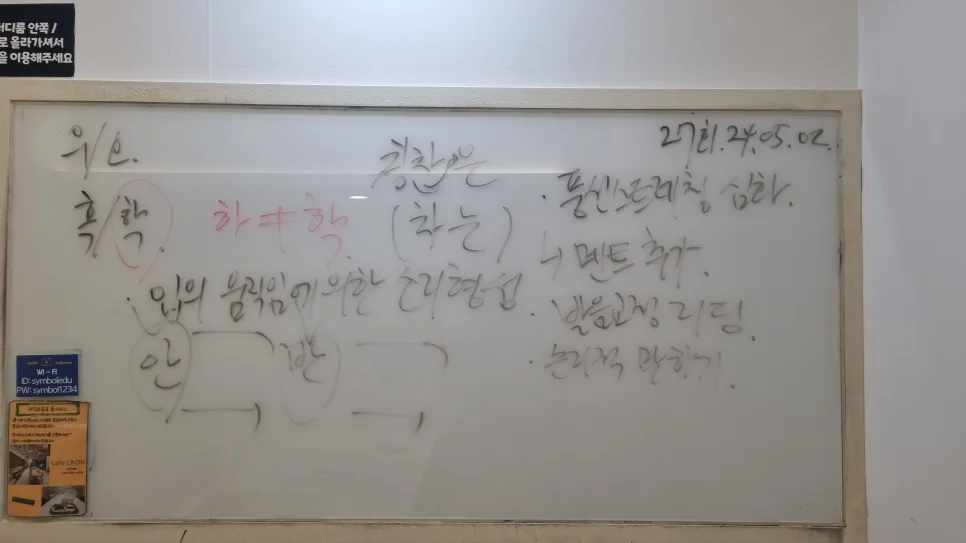 러디룸 안쪽 /
로 올라가셔서
을 이용해주세요
27회. 24. 05. 02.
우/오.
혹/학.
하≠학.
칭찬은
(차는)
· 입의 움직임에 의한 소리형성.
안
반
· 풍선스트레칭 심화.
↳ 멘트 추가.
발음교정 리딩.
· 논리적 말하기.
WI-FI
ID: symboledu
PW: symbol1234